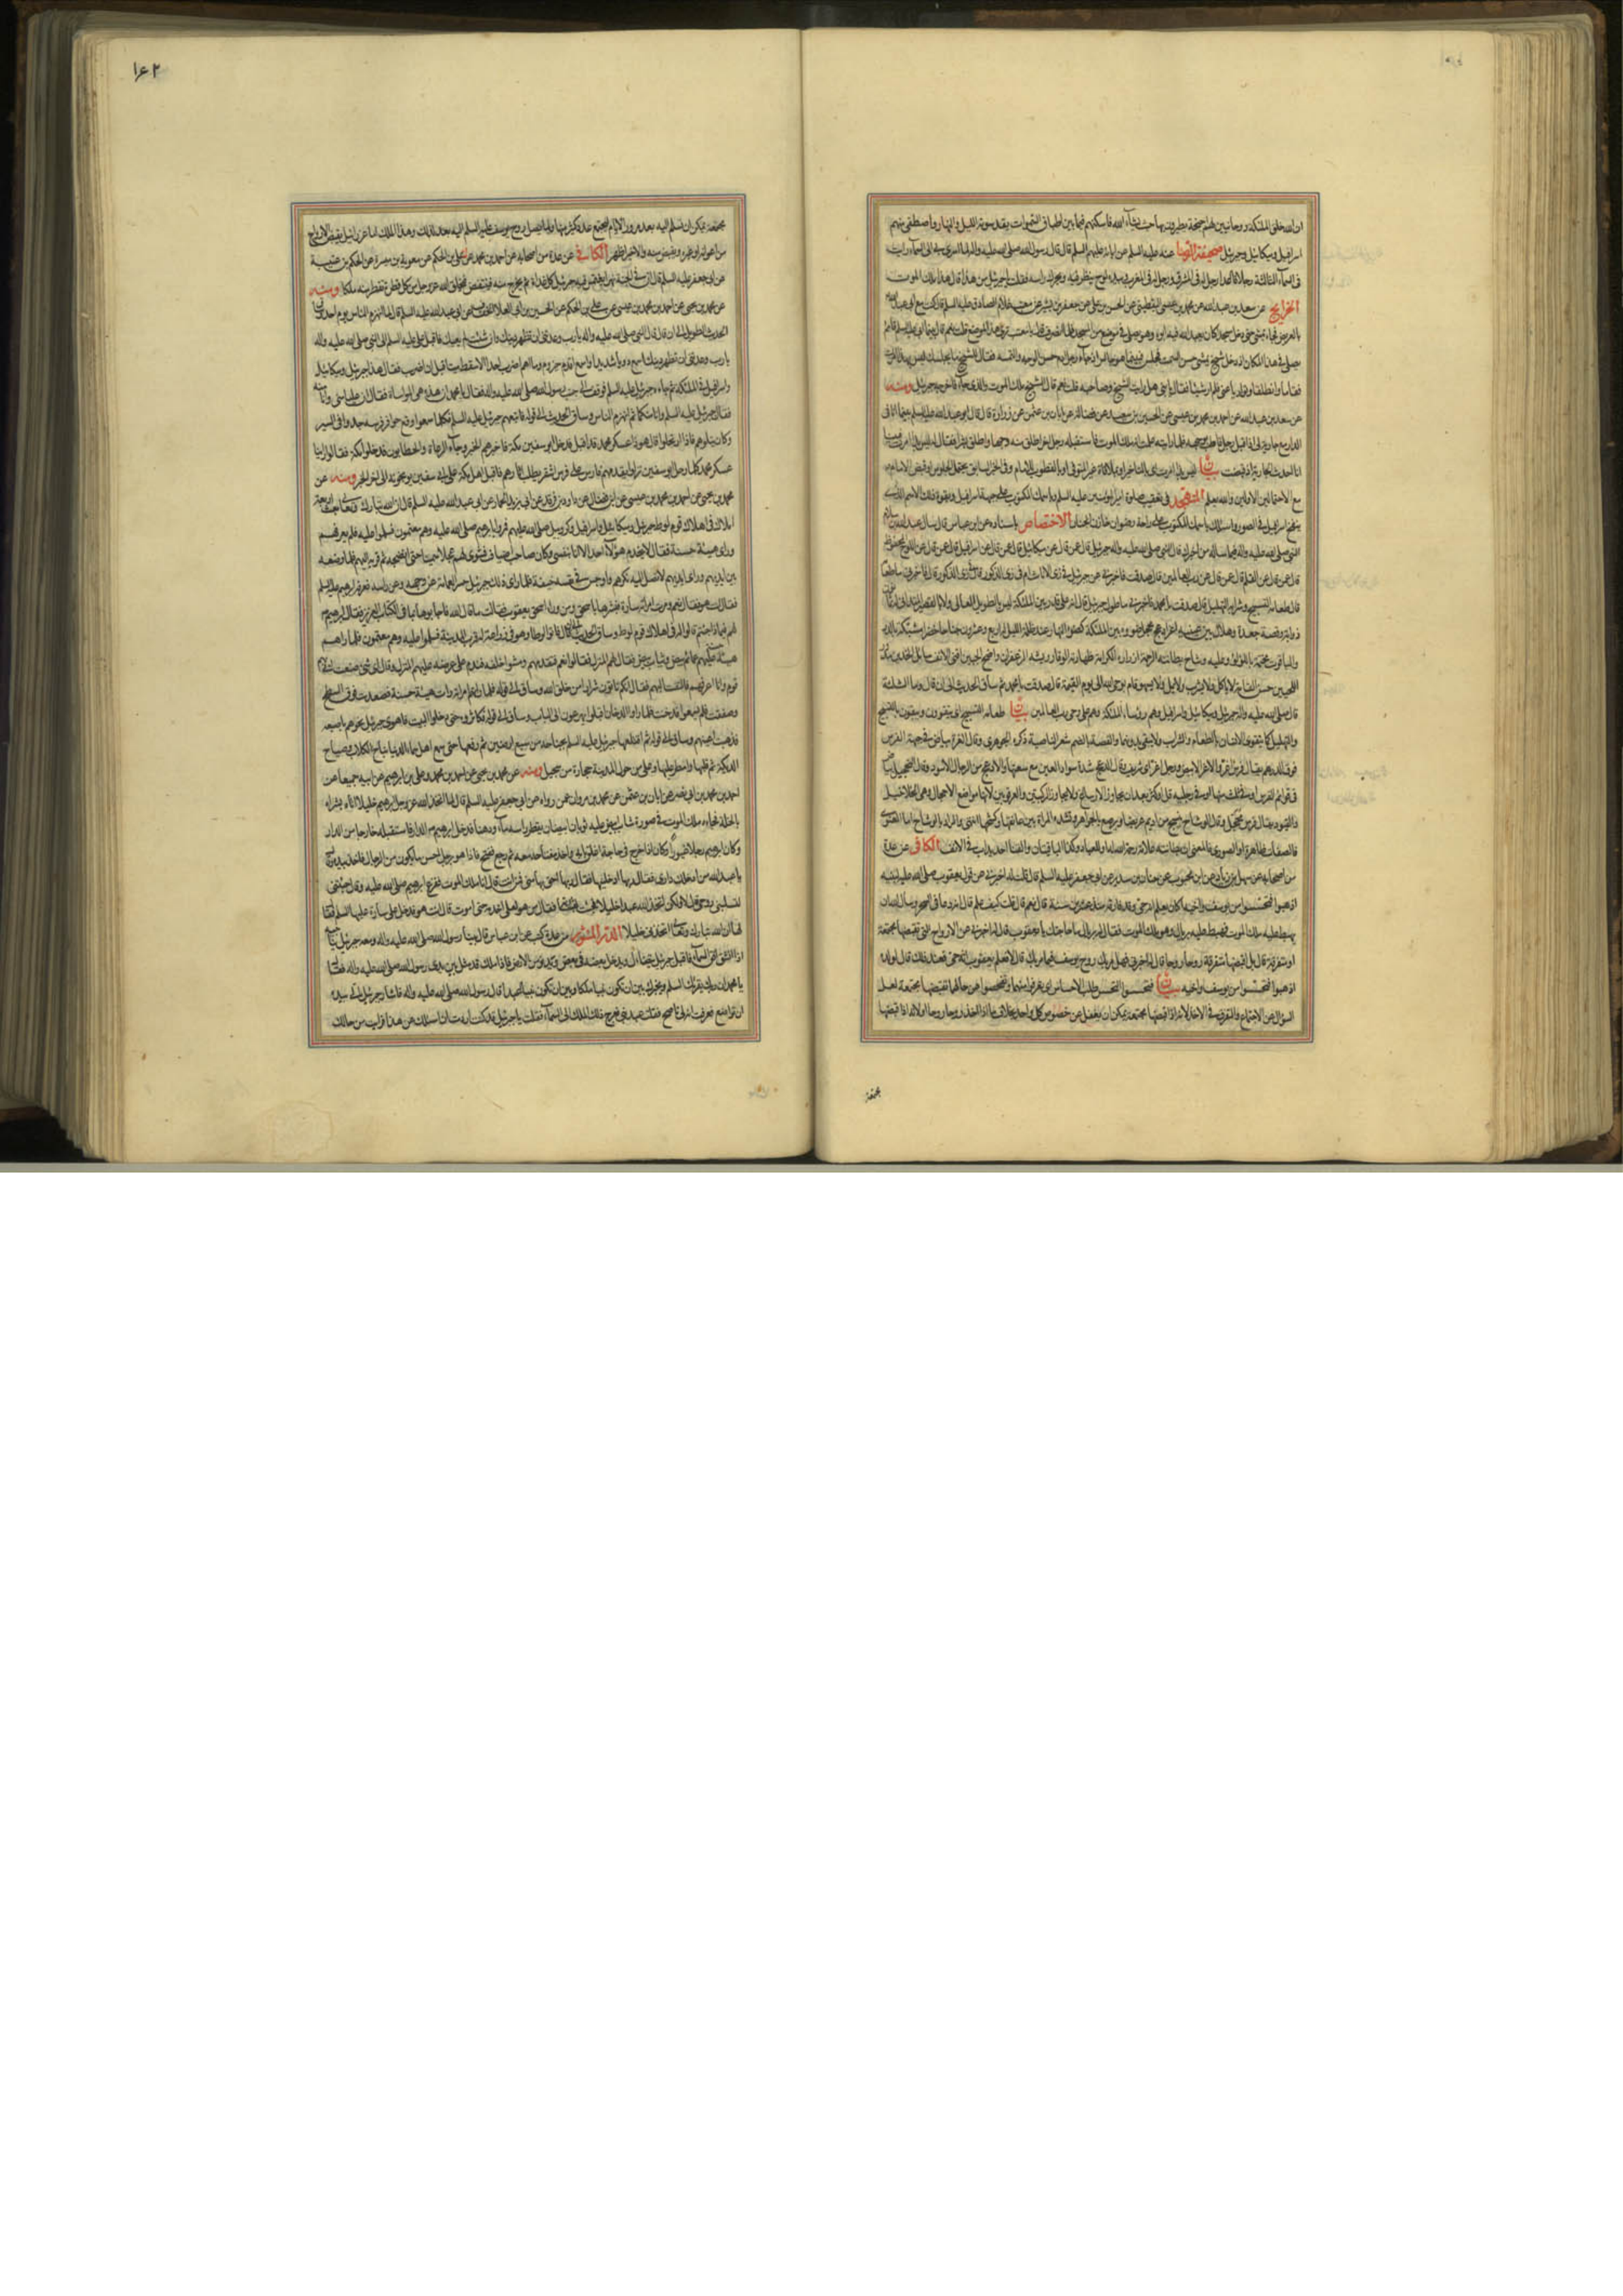 ان الله خلق الملئكة روحانيين لهم اجنحة يطيرون بها حيث يشاء الله فاسكنهم فيما بين اطباق السموات يقدسونه الليل والنهار واصطفى منهم
اسرافيل وميكائيل وجبرئيل صحيفة الرضا عنه عليه السلم عن ابائه عليهم السلم قال قال رسول الله صلى الله عليه واله لما اسرى بى الى السماء رايت
فى السماء الثالثة رجلا قاعدا رجل له فى المشرق ورجل له فى المغرب وبيده لوح ينظر فيه ويحرك راسه فقلت يا جبرئيل من هذا قال هذا ملك الموت
الخرايج عن سعد بن عبد الله عن محمد بن عيسى اليقطينى عن الحسن بن على عن جعفر بن بشير عن معتب غلام الصادق عليه السلم قال كنت مع ابى عبد الله
بالعريض فجاء يتمشى حتى دخل مسجدا كان يتعبد فيه ابوه وهو يصلى فى موضع من المسجد فلما انصرف قال يا معتب ترى هذا الموضع قلت نعم قال بينا ابى عليه السلم قائم
يصلى فى هذا المكان اذ دخل شيخ يمشى حسن السمت فجلس فبينا هو جالس اذ جاء رجل ادم حسن الوجه والتسمة فقال للشيخ ما يجلسك ليس بهذا امرت
فقاما وانطلقا وتواريا عنى فلم ار شيئا فقال ابى يا بنى هل رايت الشيخ وصاحبه قلت نعم فمن الشيخ ومن صاحبه قال الشيخ ملك الموت والذى جاء فاخرجه جبرئيل ومنه
عن سعد بن عبد الله عن احمد بن محمد بن عيسى عن الحسين بن سعيد عن فضالة عن ابان بن عثمن عن زرارة قال قال ابو عبد الله عليه السلم بينما انا فى
الدار مع جارية لى اذ اقبل رجل قاطب بوجهه فلما رايته علمت انه ملك الموت فاستقبله رجل اخر اطلق منه وجها واطلق بشرا فقال له ليس بذا امرت فبينا
انا احدث الجارية اذ قبضت بيان
مع الاحتمالين الاولين والله يعلم المتهجد فى تعقيب صلوة امير المؤمنين عليه السلم وباسمك المكتوب على جبهة اسرافيل وبقوة ذلك الاسم الذى
ينفخ اسرافيل فى الصور واسئلك باسمك المكتوب على راحة رضوان خازن الجنان الاختصاص باسناده عن ابن عباس قال سال عبد الله بن سلام
النبى صلى الله عليه واله فيما ساله من اخبرك قال النبى صلى الله عليه واله جبرئيل قال عمن قال عن ميكائيل قال عمن قال عن اسرافيل قال عمن قال عن اللوح المحفوظ
قال عمن قال عن القلم قال عمن قال عن رب العالمين قال صدقت فاخبرنى عن جبرئيل فى زى الاناث ام فى زى الذكور قال فى زى الذكور قال فاخبرنى ما طعامه
قال طعامه التسبيح وشرابه التهليل قال صدقت يا محمد فاخبرنى ما طول جبرئيل قال انه على قدر بين الملئكة ليس بالطويل العالى ولا بالقصير المتدانى له ثمانون
ذؤابة وقصة جعدة وهلال بين عينيه اغر ادعج محجل ضوءه بين الملئكة كضوء النهار عند ظلمة الليل له اربع وعشرون جناحا خضرا مشبكة بالدر
والياقوت مختمة باللؤلؤ وعليه وشاح بطانته الرحمة ازراره الكرامة ظهارته الوقار ريشه الزعفران واضح الجبين اقنى الانف سائل الخدين مدور
اللحيين حسن القامة لا ياكل ولا يشرب ولا يمل ولا يسهو قائم بوحى الله الى يوم القيمة قال صدقت يا محمد ثم ساق الحديث الى ان قال وما الثلثة
قال صلى الله عليه واله جبرئيل وميكائيل واسرافيل وهم رؤساء الملئكة وهم على وحى رب العالمين بيان طعامه التسبيح اى يتقوون ويبقون بالتسبيح
والتهليل كما يتقوى الانسان بالطعام والشراب ولا يبقى بدونهما والقصة بالضم شعر الناصية ذكره الجوهرى وقال الغرة بياض فى جبهة الفرس
فوق الدرهم يقال فرس اغر والاغر الابيض ورجل اغر اى شريف وقال الدعج شدة سواد العين مع سعتها والادعج من الرجال الاسود وقال التحجيل بياض
فى قوائم الفرس او فى ثلث منها او فى رجليه قل او كثر بعد ان يجاوز الارساغ ولا يجاوز الركبتين والعرقوبين لانها مواضع الاحجال وهى الخلاخيل
والقيود يقال فرس محجل وقال الوشاح ينسج من اديم عريضا ويرصع بالجواهر وتشده المراة بين عاتقها وكشحها انتهى
الكافى عن عدة
من اصحابه عن سهل بن زياد عن ابن محبوب عن حنان بن سدير عن ابى جعفر عليه السلم قال قلت له اخبرنى عن قول يعقوب صلى الله عليه لبنيه
اذهبوا فتحسسوا من يوسف واخيه اكان يعلم انه حى وقد فارقه منذ عشرين سنة قال نعم قال قلت كيف علم قال انه دعا فى السحر وسال الله ان
يهبط عليه ملك الموت فهبط عليه بريال وهو ملك الموت فقال له بريال ما حاجتك يا يعقوب قال اخبرنى عن الارواح التى تقبضها مجتمعة
او متفرقة قال بل اقبضها متفرقة روحا روحا قال له اخبرنى فهل مر بك روح يوسف فيما مر بك قال لا فعلم يعقوب انه حى فعند ذلك قال لولده
اذهبوا فتحسسوا من يوسف واخيه بيان فتحسسوا التحسس طلب الاحساس اى تعرفوا منهما وتفحصوا عن حالهما تقبضها مجتمعة لعل
السؤال عن الاجتماع والتفرق فى الاخذ لانه اذا قبضها مجتمعة يمكن ان يغفل عن خصوص كل واحد بخلاف ما اذا اخذ روحا روحا
مجتمعة
١٤٢
الكافى عن عدة من اصحابه عن احمد بن محمد عن على بن الحكم عن معوية بن ميسرة عن الحكم بن عتيبة
عن ابى جعفر عليه السلم قال ان فى الجنة نهرا يغتمس فيه جبرئيل كل غداة ثم يخرج منه فينتفض فيخلق الله عز وجل من كل قطرة تقطر منه ملكا ومنه
عن محمد بن يحيى عن احمد بن محمد بن عيسى عن على بن الحكم عن الحسين بن ابى العلا الخفاف عن ابى عبد الله عليه السلم قال لما انهزم الناس يوم احد
الحديث الطويل الى ان قال قال النبى صلى الله عليه واله يا رب وعدتنى ان تظهر دينك وان شئت لم يعيك فاقبل على عليه السلم الى النبى صلى الله عليه واله
يا رب وعدتنى ان تظهر دينك اسمع دويا شديدا واسمع اقدم حيزوم وما اهم اضرب احدا الا سقط ميتا قبل ان اضربه فقال هذا جبرئيل وميكائيل
واسرافيل فى الملئكة ثم جاء جبرئيل عليه السلم فوقف الى جنب رسول الله صلى الله عليه واله فقال يا محمد ان هذه هى المواساة فقال ان عليا منى وانا منه
فقال جبرئيل عليه السلم وانا منكما ثم انهزم الناس وساق الحديث الى قوله فاتبعهم جبرئيل عليه السلم فكلما سمعوا وقع حوافر فرسه جدوا فى السير
وكان يتلوهم فاذا ارتحلوا قال هوذا عسكر محمد قد اقبل فدخل ابو سفين مكة فاخبرهم الخبر وجاء الرعاة والحطابون فدخلوا مكة فقالوا راينا
عسكر محمد كلما رحل ابو سفين نزلوا يقدمهم فارس على فرس اشقر يطلب اثارهم فاقبل اهل مكة على ابى سفين يوبخونه الى اخر الخبر ومنه عن
محمد بن يحيى عن احمد بن محمد بن عيسى عن ابن فضال عن داود بن فرقد عن ابى يزيد الحمار عن ابى عبد الله عليه السلم قال ان الله تبارك وتعالى بعث اربعة
املاك فى اهلاك قوم لوط جبرئيل وميكائيل واسرافيل وكروبيل صلى الله عليهم فمروا بابرهيم صلى الله عليه وهم معتمون فسلموا عليه فلم يعرفهم
وراى هيئة حسنة فقال لا يخدم هؤلاء احد الا انا بنفسى وكان صاحب ضيافة فشوى لهم عجلا سمينا حتى انضجه ثم قربه اليهم فلما وضعه
بين ايديهم وراى ايديهم لا تصل اليه نكرهم واوجس فى نفسه خيفة فلما راى ذلك جبرئيل حسر العمامة عن وجهه وعن راسه فعرفه ابرهيم عليه السلم
فقال انت هو فقال نعم ومرت امراته سارة فبشرها باسحق ومن وراء اسحق يعقوب فقالت ما قال الله فاجابوها بما فى الكتاب العزيز فقال ابرهيم
لهم فيماذا جئتم قالوا له فى اهلاك قوم لوط وساق الحديث الى ان قال فاتوا لوطا وهو فى زراعة له قرب المدينة فسلموا عليه وهم معتمون فلما راهم
هيئة حسنة عليهم عمائم بيض وثياب بيض فقال لهم المنزل فقالوا نعم فتقدمهم ومشوا خلفه فندم على عرضه عليهم المنزل وقال اى شئ صنعت اتى بهم
قوم وانا اعرفهم فالتفت اليهم فقال انكم تاتون شرار من خلق الله وساق الى قوله فلما راتهم امراته رات هيئة حسنة فصعدت فوق السطح
وصفقت فلم يسمعوا فدخنت فلما راوا الدخان اقبلوا يهرعون الى الباب وساق الى قوله فكاثروه حتى دخلوا البيت فاهوى جبرئيل نحوهم باصبعه
فذهبت اعينهم وساق الى قوله ثم اقتلعها جبرئيل عليه السلم بجناحه من سبع ارضين ثم رفعها حتى سمع اهل سماء الدنيا نباح الكلاب وصياح
الديكة ثم قلبها وامطر عليها وعلى من حول المدينة حجارة من سجيل ومنه عن محمد بن يحيى عن احمد بن محمد وعلى بن ابرهيم عن ابيه جميعا عن
احمد بن محمد بن ابى نصر عن ابان بن عثمن عن محمد بن مروان عمن رواه عن ابى جعفر عليه السلم قال لما اتخذ الله عز وجل ابرهيم خليلا اتاه بشراه
بالخلة فجاءه ملك الموت فى صورة شاب ابيض عليه ثوبان ابيضان يقطر راسه ماء ودهنا فدخل ابرهيم الدار فاستقبله خارجا من الدار
وكان ابرهيم رجلا غيورا وكان اذا خرج فى حاجة اغلق بابه واخذ مفتاحه معه ثم رجع ففتح فاذا هو برجل احسن ما يكون من الرجال فاخذ بيده وقال
يا عبد الله من ادخلك دارى فقال ربها ادخلنيها فقال ربها احق بها منى فمن انت قال انا ملك الموت ففزع ابرهيم صلى الله عليه وقال جئتنى
لتسلبنى روحى قال لا ولكن اتخذ الله عبدا خليلا فجئت لبشارته فقال من هو لعلى اخدمه حتى اموت قال انت هو فدخل على سارة عليها السلم فقال
لها ان الله تبارك وتعالى اتخذنى خليلا الدر المنثور من عدة كتب عن ابن عباس قال بينا رسول الله صلى الله عليه واله ومعه جبرئيل يناجيه
اذ انشق افق السماء فاقبل جبرئيل يتضاءل ويدخل بعضه فى بعض ويدنو من الارض فاذا ملك قد مثل بين يدى رسول الله صلى الله عليه واله فقال
يا محمد ان ربك يقرئك السلم ويخيرك بين ان تكون نبيا ملكا وبين ان تكون نبيا عبدا قال رسول الله صلى الله عليه واله فاشار جبرئيل الى بيده
ان تواضع فعرفت انه لى ناصح فقلت عبد نبى فعرج ذلك الملك الى السماء فقلت يا جبرئيل قد كنت اردت ان اسئلك عن هذا فرايت من حالك